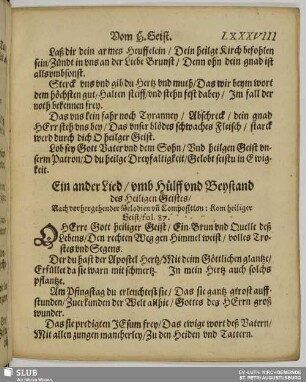 Vom H. Geist. LXXXVIII
Laß dir dein armes Heuffelein / Dein heilge Kirch befohlen
sein / Zündt in vns an der Liebe Brunst / Denn ohn dein gnad ist
alls vmbsonst.
Sterck vns vnd gib du Hertz vnd muth / Das wir beym wort
dem höchsten gut / Halten steiff vnd stehn fest dabey / Im fall der
noth bekennen frey.
Das vns kein fahr noch Tyranney / Abschreck / dein gnad
HErr steh vns bey / Das vnser blödes schwaches Fleisch / starck
werd durch dich O heilger Geist.
Lob sey Gott Vater vnd dem Sohn / Vnd heilgen Geist vn-
serm Patron / O du heilge Dreyfaltigkeit / Gelobt seistu in Ewig-
keit.
Ein ander Lied / vmb Hülff vnd Beystand
des Heiligen Geistes /
Nach vorhergehender Melodien vñ Composition: Kom heiliger
Geist / fol. 87.
O HErre Gott heiliger Geist / Ein Brun vnd Quelle deß
Lebens / Den rechten Weg gen Himmel weist / volles Tro-
stes vnd Segens.
Der du hast der Apostel Hertz / Mit deim Göttlichen glantze /
Erfüllet da sie warn mit schmertz. In mein Hertz auch solchs
pflantze.
Am Pfingstag du erleuchtest sie / Das sie gantz getrost auff-
stunden / Zuerkunden der Welt allhie / Gottes des HErrn groß
wunder.
Das sie predigten JEsum frey / Das ewige wort deß Vatern /
Mit allen zungen mancherley / Zu den Heiden vnd Tattern.
SLUB
Wir führen Wissen.
EV.-LUTH. KIRCHGEMEINDE
ST. PETRI AUGUSTUSBURG